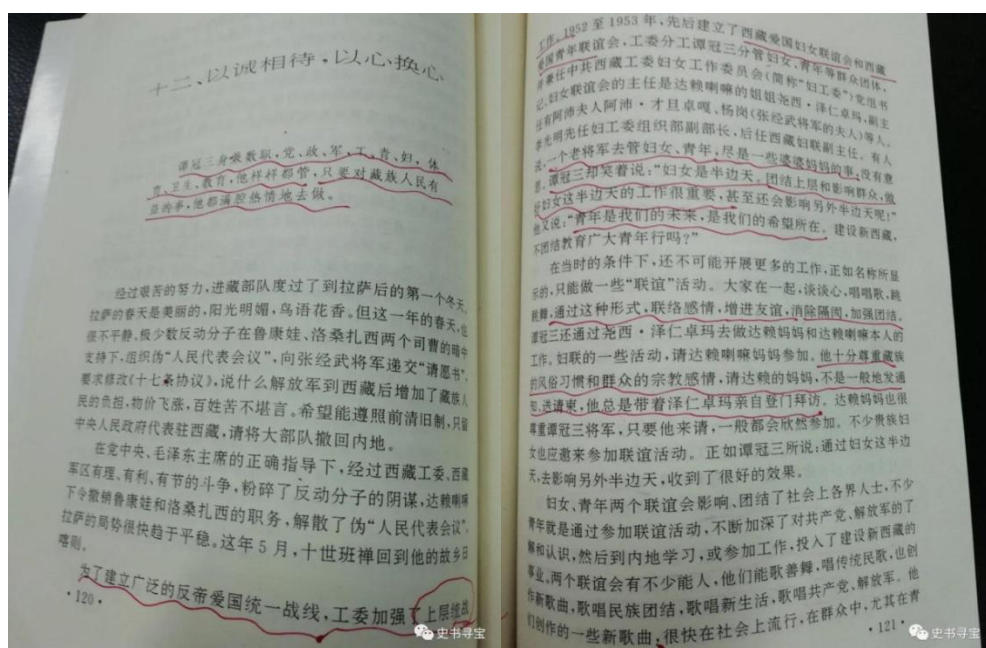 十二、以诚相待，以心换心
谭冠三身兼数职，党、政、军、工、青、妇，体
育、卫生、教育，他样样都管，只要对藏族人民有
益的事，他都满腔热情地去做。
经过艰苦的努力，进藏部队度过了到拉萨后的第一个冬天。
拉萨的春天是美丽的，阳光明媚，鸟语花香。但这一年的春天，也
很不平静，极少数反动分子在鲁康娃、洛桑扎西两个司曹的暗中
支持下，组织伪“人民代表会议”，向张经武将军递交“请愿书”，
要求修改《十七条协议》，说什么解放军到西藏后增加了藏族人
民的负担，物价飞涨，百姓苦不堪言。希望能遵照前清旧制，只留
中央人民政府代表驻西藏，请将大部队撤回内地。
在党中央、毛泽东主席的正确指导下，经过西藏工委、西藏
军区有理、有利、有节的斗争，粉碎了反动分子的阴谋，达赖喇嘛
下令撤销鲁康娃和洛桑扎西的职务，解散了伪“人民代表会议”，
拉萨的局势很快趋于平稳。这年5月，十世班禅回到他的故乡日
喀则。
为了建立广泛的反帝爱国统一战线，工委加强了上层统战
·120·
史书寻宝
工作，1952至1953年，先后建立了西藏爱国妇女联谊会和西藏
爱国青年联谊会，工委分工谭冠三分管妇女、青年等群众团体，
并兼任中共西藏工委妇女工作委员会（简称“妇工委”）党组书
记，妇女联谊会的主任是达赖喇嘛的姐姐尧西·泽仁卓玛，副主
任有阿沛夫人阿沛·才旦卓嘎，杨岗（张经武将军的夫人）等人。
李光明先任妇工委组织部副部长，后任西藏妇联副主任。有人
说，一个老将军去管妇女、青年，尽是一些婆婆妈妈的事，没有意
思。谭冠三却笑着说：“妇女是半边天。团结上层和影响群众，做
好妇女这半边天的工作很重要，甚至还会影响另外半边天呢！”
他又说：“青年是我们的未来，是我们的希望所在。建设新西藏，
不团结教育广大青年行吗？”
在当时的条件下，还不可能开展更多的工作，正如名称所显
示的，只能做一些“联谊”活动。大家在一起，谈谈心，唱唱歌，跳
跳舞，通过这种形式，联络感情，增进友谊，消除隔阂，加强团结。
谭冠三还通过尧西·泽仁卓玛去做达赖妈妈和达赖喇嘛本人的
工作。妇联的一些活动，请达赖喇嘛妈妈参加。他十分尊重藏族
的风俗习惯和群众的宗教感情，请达赖的妈妈，不是一般地发通
知、送请柬，他总是带着泽仁卓玛亲自登门拜访。达赖妈妈也很
尊重谭冠三将军，只要他来请，一般都会欣然参加。不少贵族妇
女也应邀来参加联谊活动。正如谭冠三所说：通过妇女这半边
天，去影响另外半边天，收到了很好的效果。
妇女、青年两个联谊会影响、团结了社会上各界人士，不少
青年就是通过参加联谊活动，不断加深了对共产党、解放军的了
解和认识，然后到内地学习，或参加工作，投入了建设新西藏的
事业。两个联谊会有不少能人，他们能歌善舞，唱传统民歌，也创
作新歌曲，歌唱民族团结，歌唱新生活，歌唱共产党、解放军。他
们创作的一些新歌曲，很快在社会上流行，在群众中，尤其在青
·121·
史书寻宝